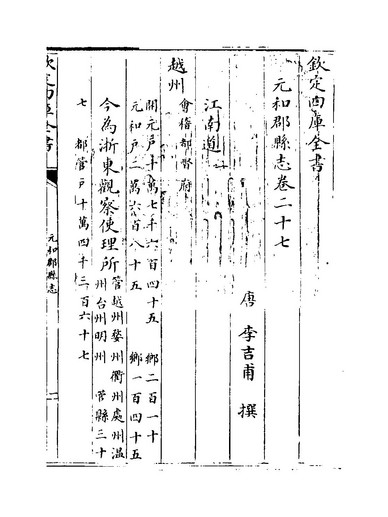 欽定四庫全書
元和郡縣志卷二十七
唐 李吉甫 撰
江南道
越州 會稽 都督府
開元戶十萬七千六百四十五 鄉二百一十
元和戶二萬六百八十五 鄉一百四十五
今為浙東觀察使理所 管越州婺州衢州處州溫
州台州明州 管縣三十
七 都管戶十萬四千三百六十七
欽定四庫全書
元和郡縣志